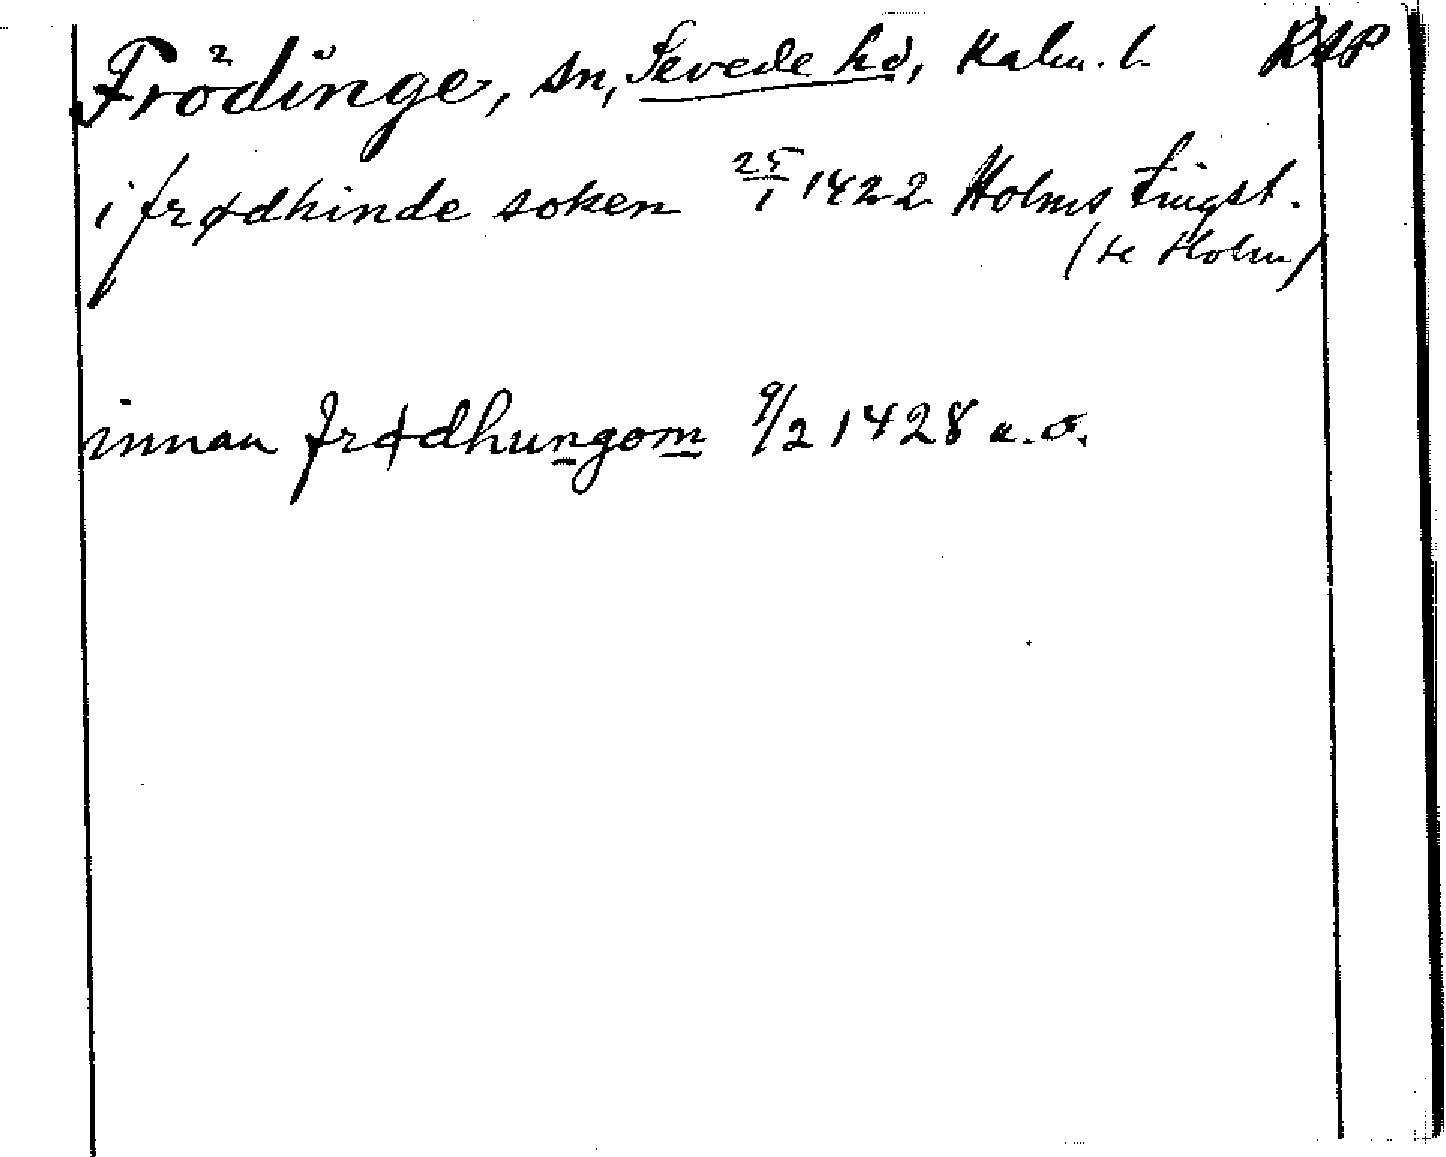 Frödinge, sn, Sevede hd, Kalm. l. RAP
i frødhinde soken 25/1 1422 Holms tingst.
(te Holm)
innan frødhungom 9/2 1428 a.o.